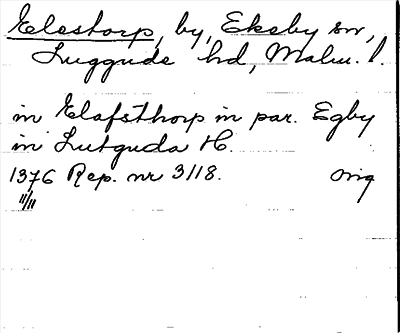 Elestorp, by, Ekeby sn,
Luggude hd, Malm. l.
in Elafsthorp in par. Egby
in Lutguda H.
1376 Rep. nr 3118. orig
11/11